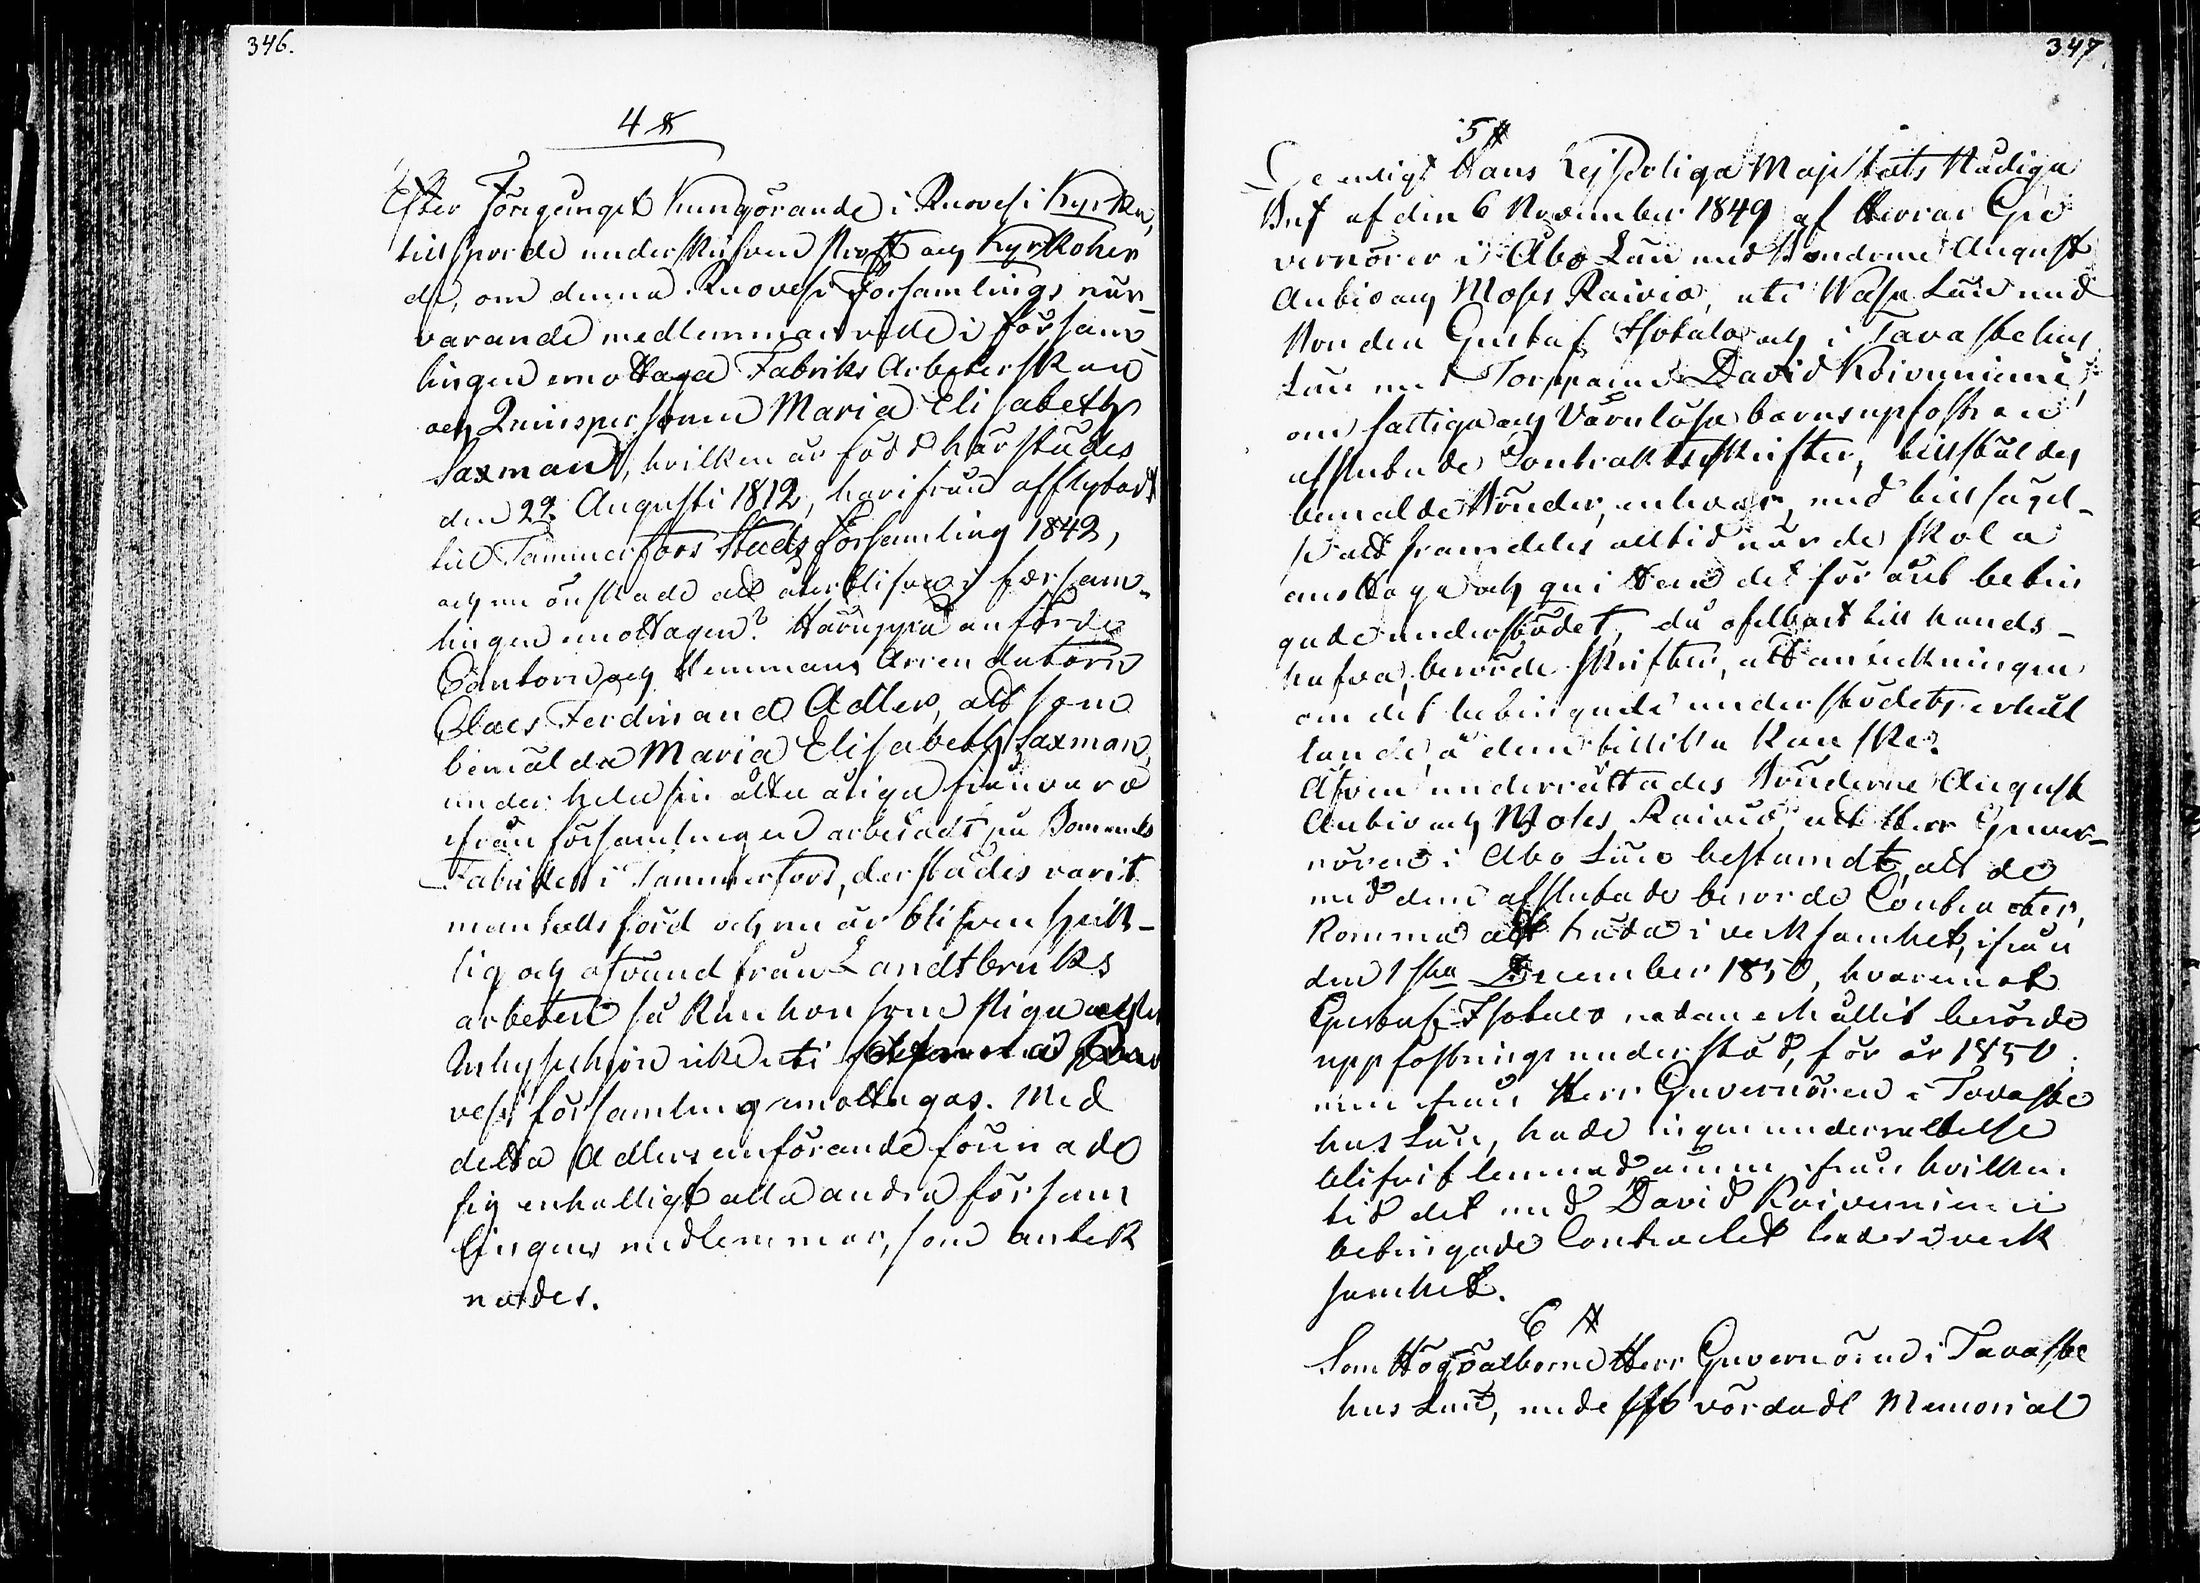 346.
4 §
Efter föregånget kungörande i Ruovesi Kyrka,
tillsporde underskrifven Prost och Kyrkoher
de, om denna Ruovesi Församlings när-
varande medlemmar vilde i försam-
lingen emottaga Fabriks Arbeterskan
och Qvinspersonen Maria Elisabeth
Saxman, hvilken är född härstädes
den 22 Augusti 1812, härifrån afflyttad
till Tammerfors Stads församling 1842,
och nu önskade att återblifva i försam-
lingen emottagen? Häruppå anförde
Cantorn och Hemmans Arrendatorn
Claes Ferdinand Adler, att som
bemälda Maria Elisabeth Saxman,
under hela sin åtta åriga frånvaro
ifrån församlingen arbetadt på Bomulls
Fabriken i Tammerfors, derstädes varit
mantalsförd och nu är blifven sjuk-
lig och ovand från Landtbruks
arbeten så kan hon som piga eller
Inhyseshjon icke uti Ruo
vesi församling emottagas. Med
detta Adlers anförande förenade
sig enhälligt alla andra försam
lingens medlemmar, som antek
nades.
347.
5 §
Se enligt Hans Kejserliga Majestäts Nådiga
Bref af den 6 November 1849 af Herrar Gu
vernörer i Åbo Län med Bönderne August
Anbio och Moses Raivio, uti Wasa Län med
Bonden Gustaf Isotalo och i Tavastehus
Län med Torpparen David Koivuniemi,
om fattiga och Värnlösa barns upfostran
afslutade Contraktsskrifter, tillstäldes
bemälde Bönder, enhvar, med tillsägel-
se att framdeles alltid när de skola
emottaga och qvittera det för året betin
gade understödet, då ofelbart till hands-
hafva, berörde skrifter, att anteckningen
om det betingade understödets erhål
lande, å dem tillika kan ske.
Äfven underrättades Bönderne August
Anbio och Moses Raivio att Herr Guver-
nören i Åbo Län bestämdt, att de
med dem afslutade berörde Contracter,
komma att träda i verksamhet, ifrån
den 1sta December 1850, hvaremot
Gustaf Isotalo redan erhållit berörde
uppfostrings understöd, för år 1850,
men från Herr Guvernören i Tavaste
hus Län, hade ingen underrättelse
blifvit lemnad, ännu från hvilken
tid det med David Koivuniemi
betingade Contractet träder i verk
samhet.
6 §
Som Högvälborne Herr Guvernören i Tavaste
hus Län, medelst vördadt Memorial